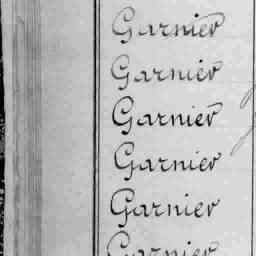 Garnier
Garnier
Garnier
Garnier
Garnier
Garnier